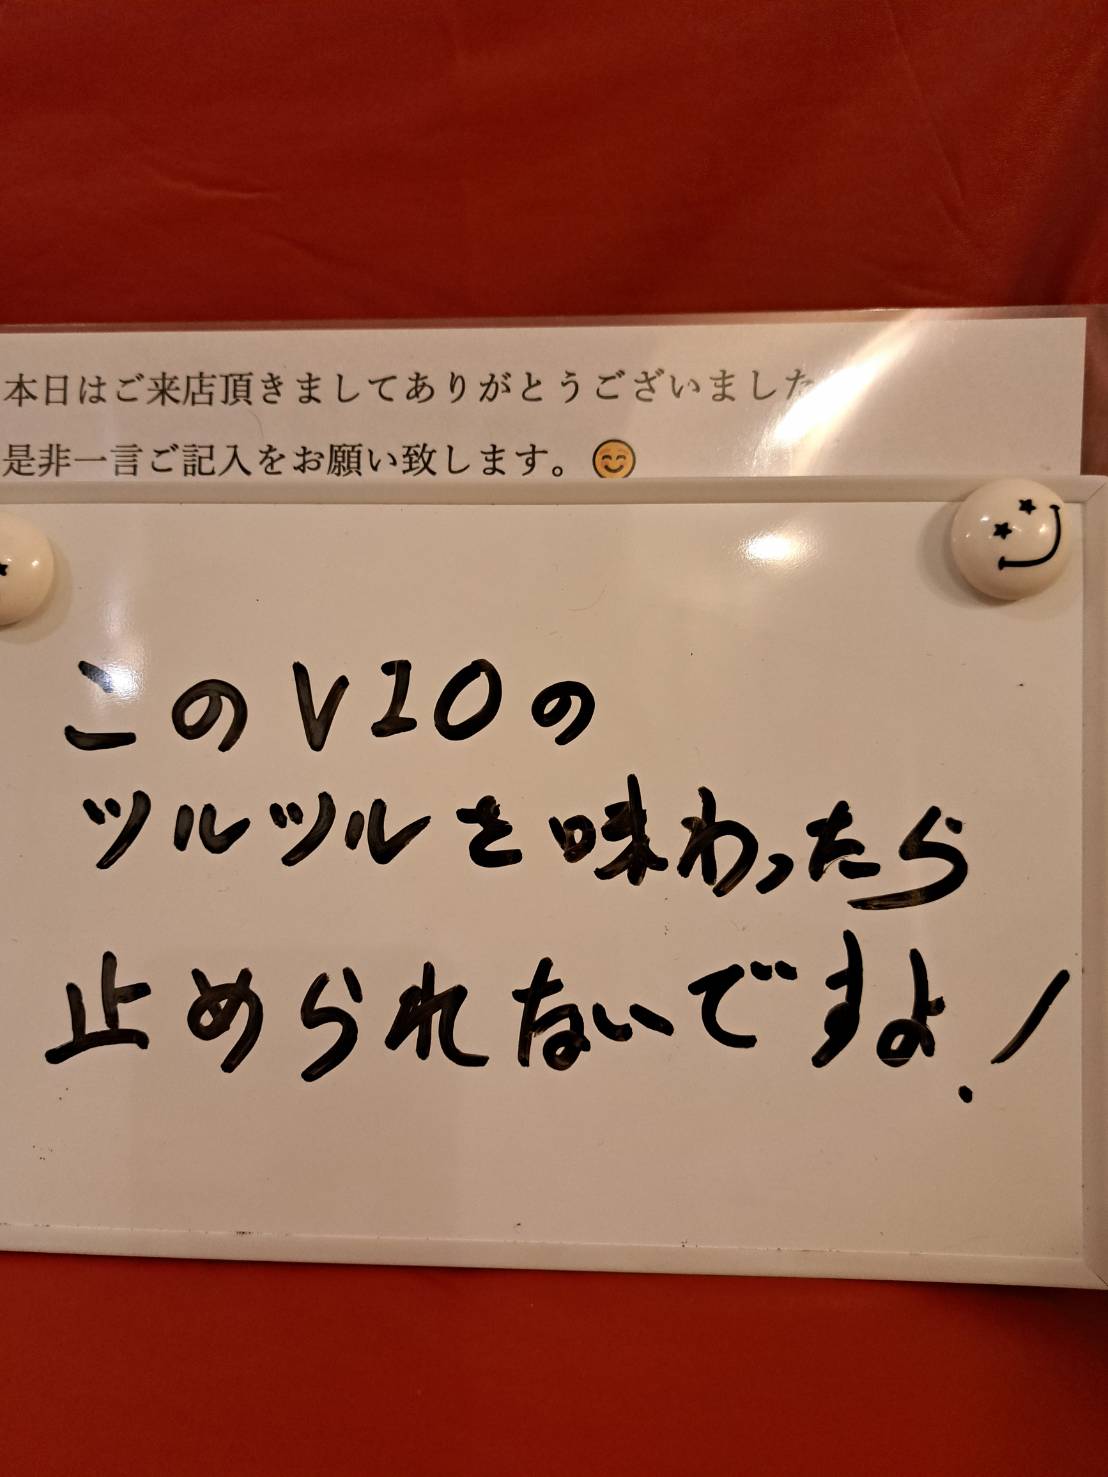 本日はご来店頂きましてありがとうございました
是非一言ご記入をお願い致します。😊
このVIOの
ツルツルを味わったら
止められないですよ!